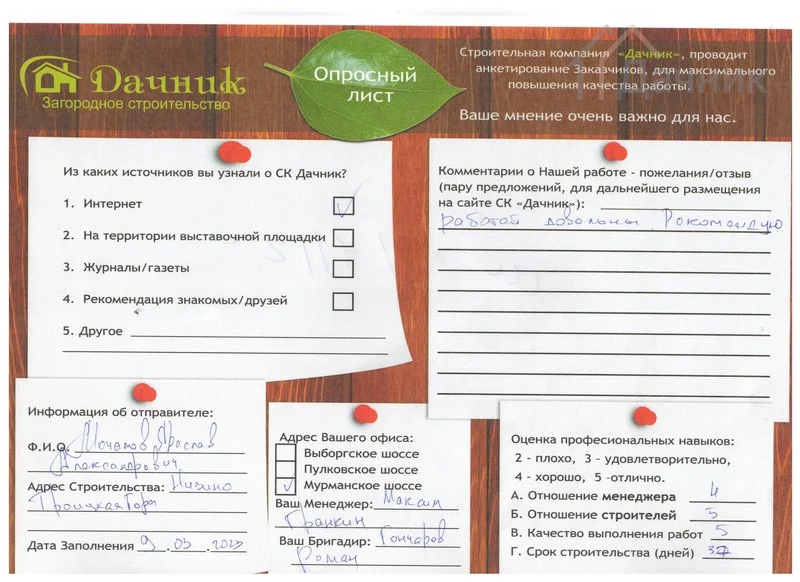 Дачник
Загородное строительство
Опросный
лист
Строительная компания «Дачник», проводит
анкетирование Заказчиков, для максимального
повышения качества работы.
Ваше мнение очень важно для нас.
Из каких источников вы узнали о СК Дачник?
1. Интернет
2. На территории выставочной площадки
3. Журналы/газеты
4. Рекомендация знакомых/друзей
5. Другое
Комментарии о Нашей работе - пожелания/отзыв
(пару предложений, для дальнейшего размещения
на сайте СК «Дачник»):
работой довольны. Рокомандую
Информация об отправителе:
Ф.И.О. Мочалов Ярослав
Александрович
Адрес Строительства: Низино
Троицкая Гора
Дата Заполнения 9 . 03 . 2023
Адрес Вашего офиса:
Выборгское шоссе
Пулковское шоссе
Мурманское шоссе
Ваш Менеджер: Максим
Гранкин
Ваш Бригадир: Гончаров
Роман
Оценка професиональных навыков:
2 - плохо, 3 - удовлетворительно,
4 - хорошо, 5 -отлично.
А. Отношение менеджера 4
Б. Отношение строителей 5
В. Качество выполнения работ 5
Г. Срок строительства (дней)